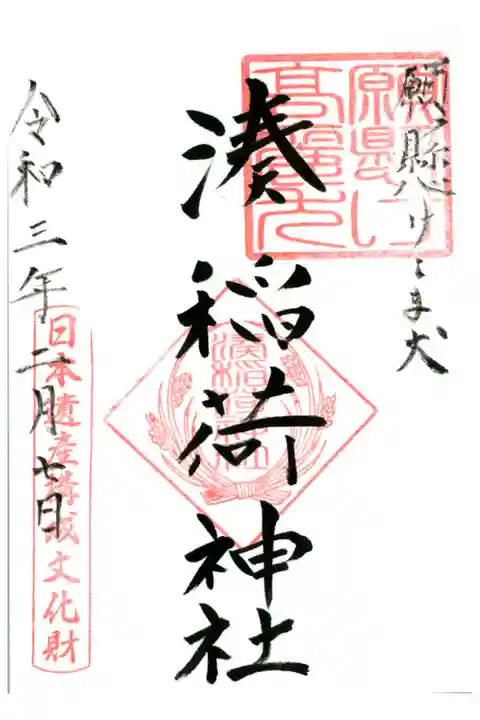 願懸けこま犬
湊稲荷神社
湊稲荷神社
令和三年二月七日
日本遺産構成文化財